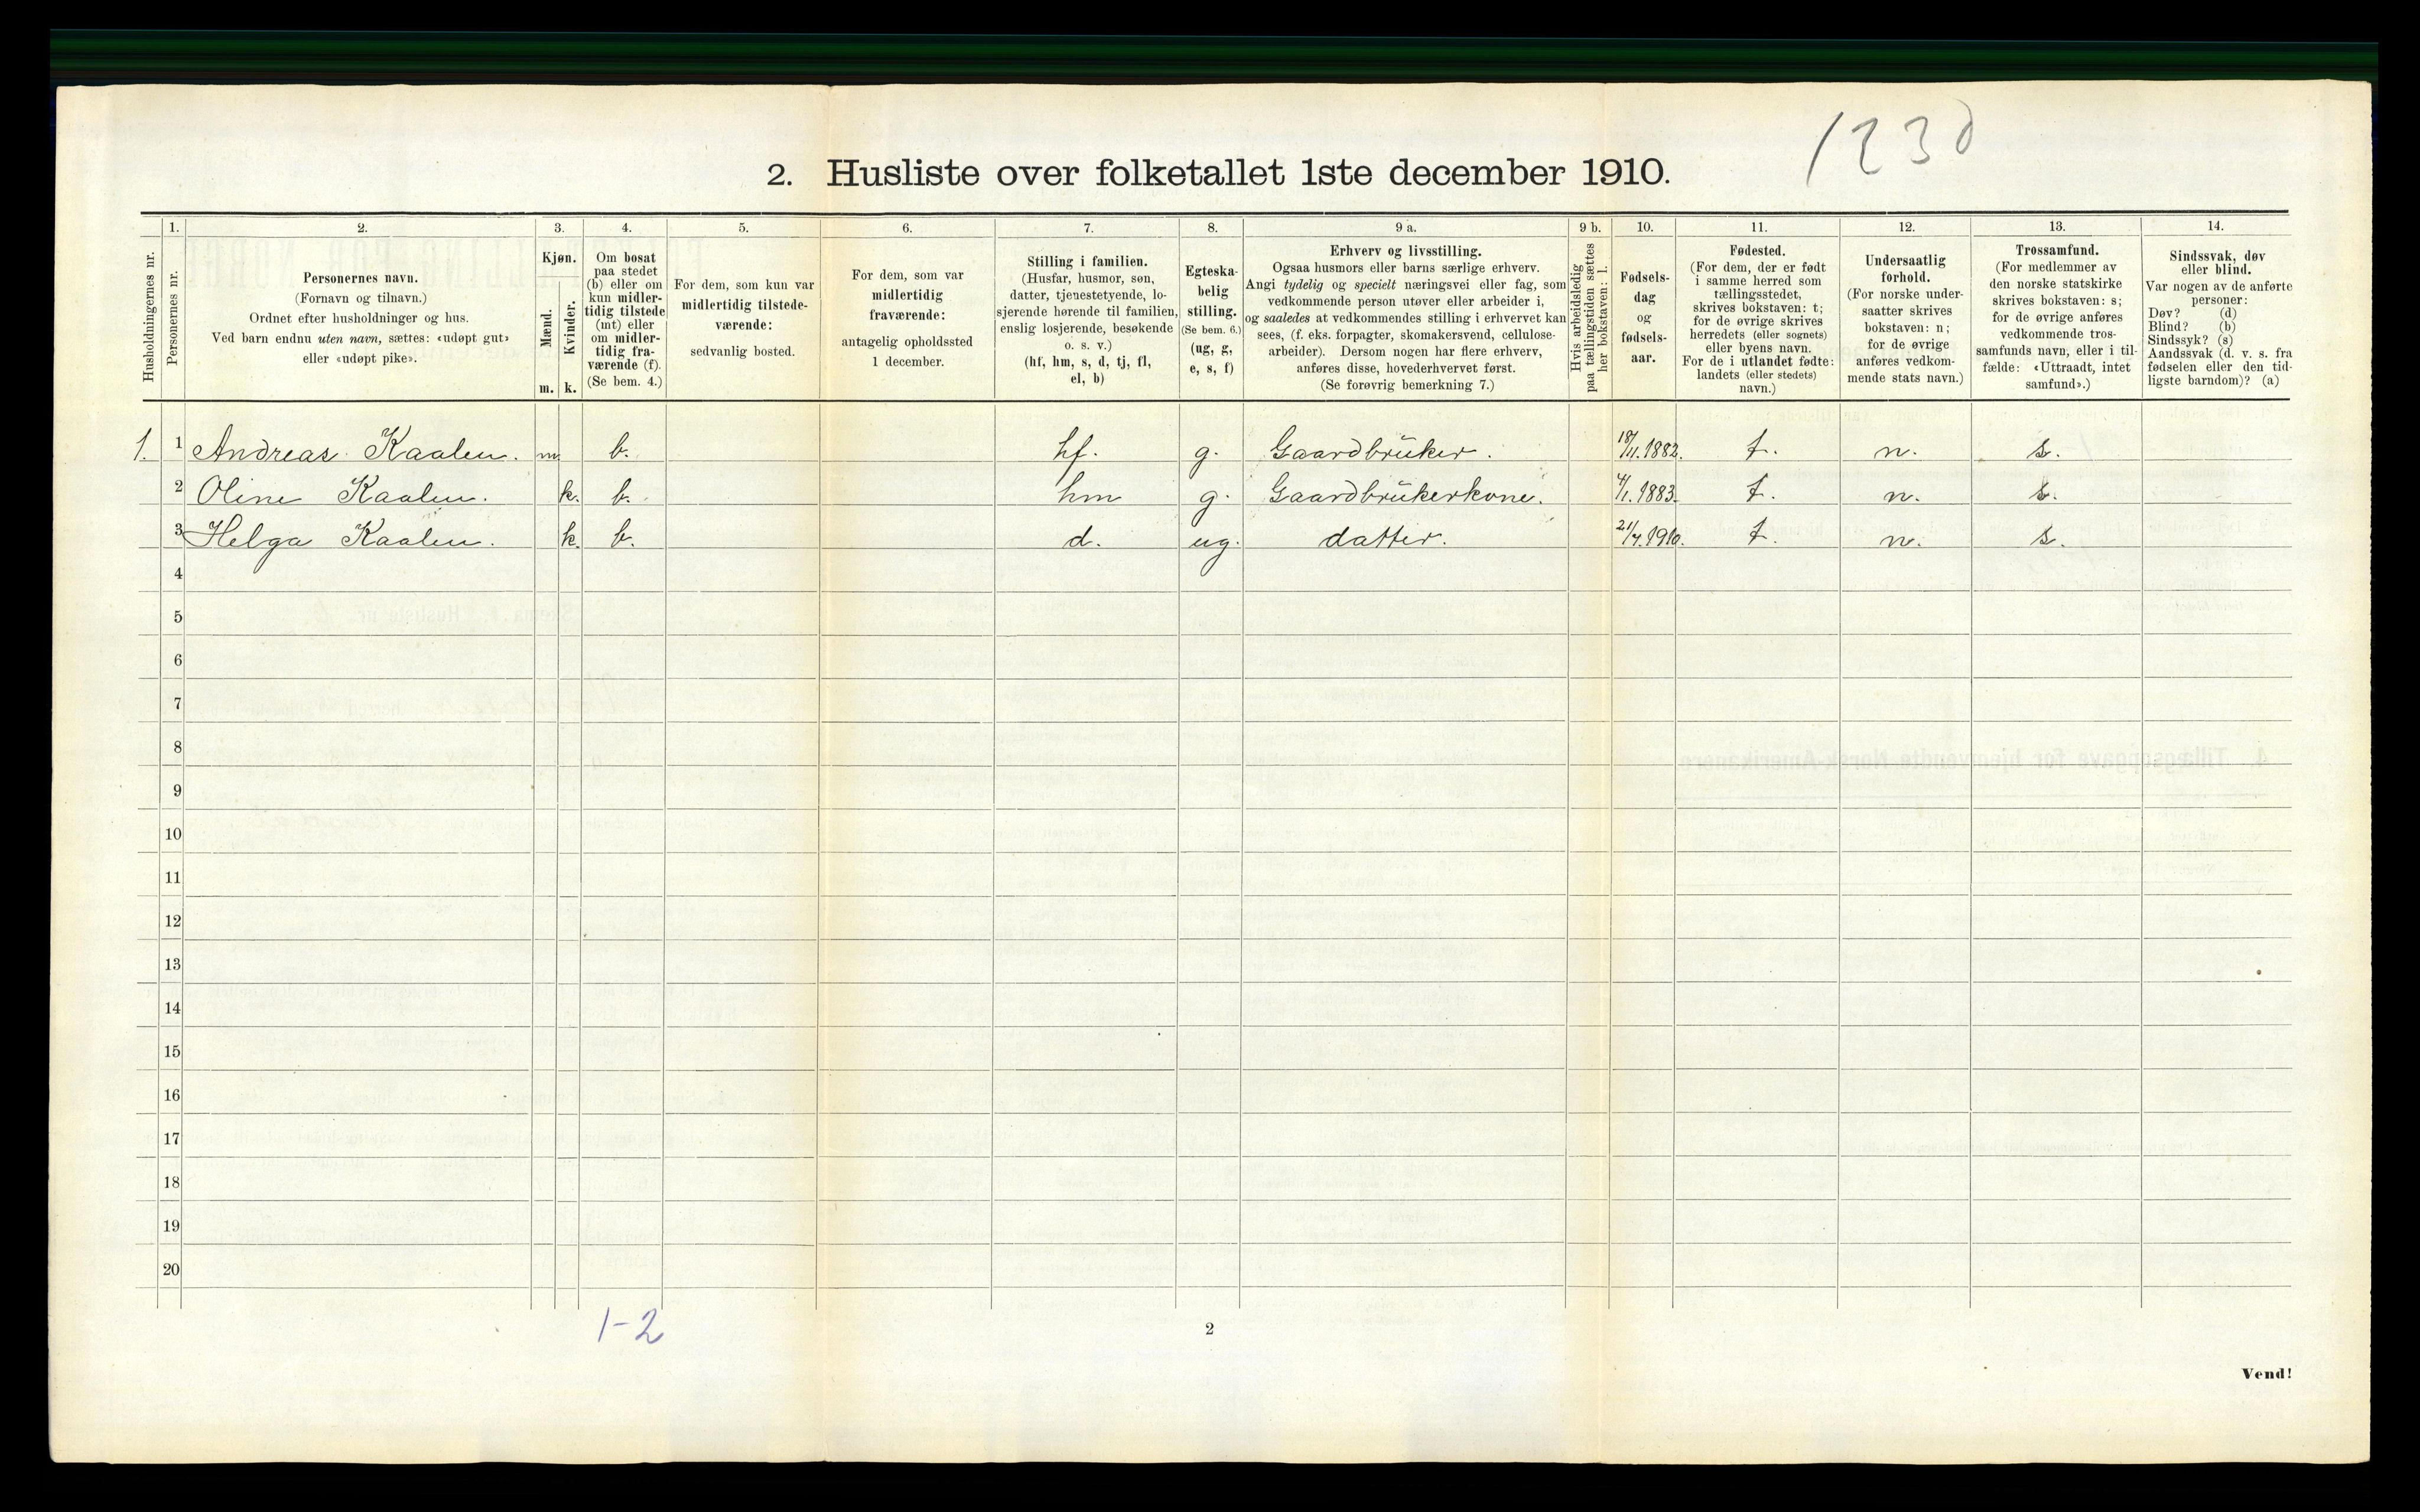 1230
2. Husliste over folketallet 1ste december 1910.
1. 2. 3. 4. 5. 6. 7. 8. 9 a. 9 b. 10. 11. 12. 13. 14.
Husholdningernes nr.
Personernes nr.
Personernes navn.
(Fornavn og tilnavn.)
Ordnet efter husholdninger og hus.
Ved barn endnu uten navn, sættes: «udøpt gut»
eller «udøpt pike».
Kjøn.
Mænd.
Kvinder.
m. k.
Om bosat
paa stedet
(b) eller om
kun midler-
tidig tilstede
(mt) eller
om midler-
tidig fra-
værende (f).
(Se bem. 4.)
For dem, som kun var
midlertidig tilstede-
værende:
sedvanlig bosted.
For dem, som var
midlertidig
fraværende:
antagelig opholdssted
1 december.
Stilling i familien.
(Husfar, husmor, søn,
datter, tjenestetyende, lo-
sjerende hørende til familien,
enslig losjerende, besøkende
o. s. v.)
(hf, hm, s, d, tj, fl,
el, b)
Egteska-
belig
stilling.
(Se bem. 6.)
(ug, g,
e, s, f)
Erhverv og livsstilling.
Ogsaa husmors eller barns særlige erhverv.
Angi tydelig og specielt næringsvei eller fag, som
vedkommende person utøver eller arbeider i,
og saaledes at vedkommendes stilling i erhvervet kan
sees, (f. eks. forpagter, skomakersvend, cellulose-
arbeider). Dersom nogen har flere erhverv,
anføres disse, hovederhvervet først.
(Se forøvrig bemerkning 7.)
Hvis arbeidsledig
paa tællingstiden sættes
her bokstaven: l.
Fødsels-
dag
og
fødsels-
aar.
Fødested.
(For dem, der er født
i samme herred som
tællingsstedet,
skrives bokstaven: t;
for de øvrige skrives
herredets (eller sognets)
eller byens navn.
For de i utlandet fødte:
landets (eller stedets)
navn.)
Undersaatlig
forhold.
(For norske under-
saatter skrives
bokstaven: n;
for de øvrige
anføres vedkom-
mende stats navn.)
Trossamfund.
(For medlemmer av
den norske statskirke
skrives bokstaven: s;
for de øvrige anføres
vedkommende tros-
samfunds navn, eller i til-
fælde: «Uttraadt, intet
samfund».)
Sindssvak, døv
eller blind.
Var nogen av de anførte
personer:
Døv? (d)
Blind? (b)
Sindssyk? (s)
Aandssvak (d. v. s. fra
fødselen eller den tid-
ligste barndom)? (a)
1. 1 Andreas Kaalen. m. b. hf. g. Gaardbrüker. 18/11.1882. t. n. s.
2 Oline Kaalen. k. b. hm g. Gaardbrükerkone. 4/1.1883. t. n. s.
3 Helga Kaalen. k. b. d. ug. datter. 21/7.1910. t. n. s.
4
5
6
7
8
9
10
11
12
13
14
15
16
17
18
19
20
1-2
2
Vend!